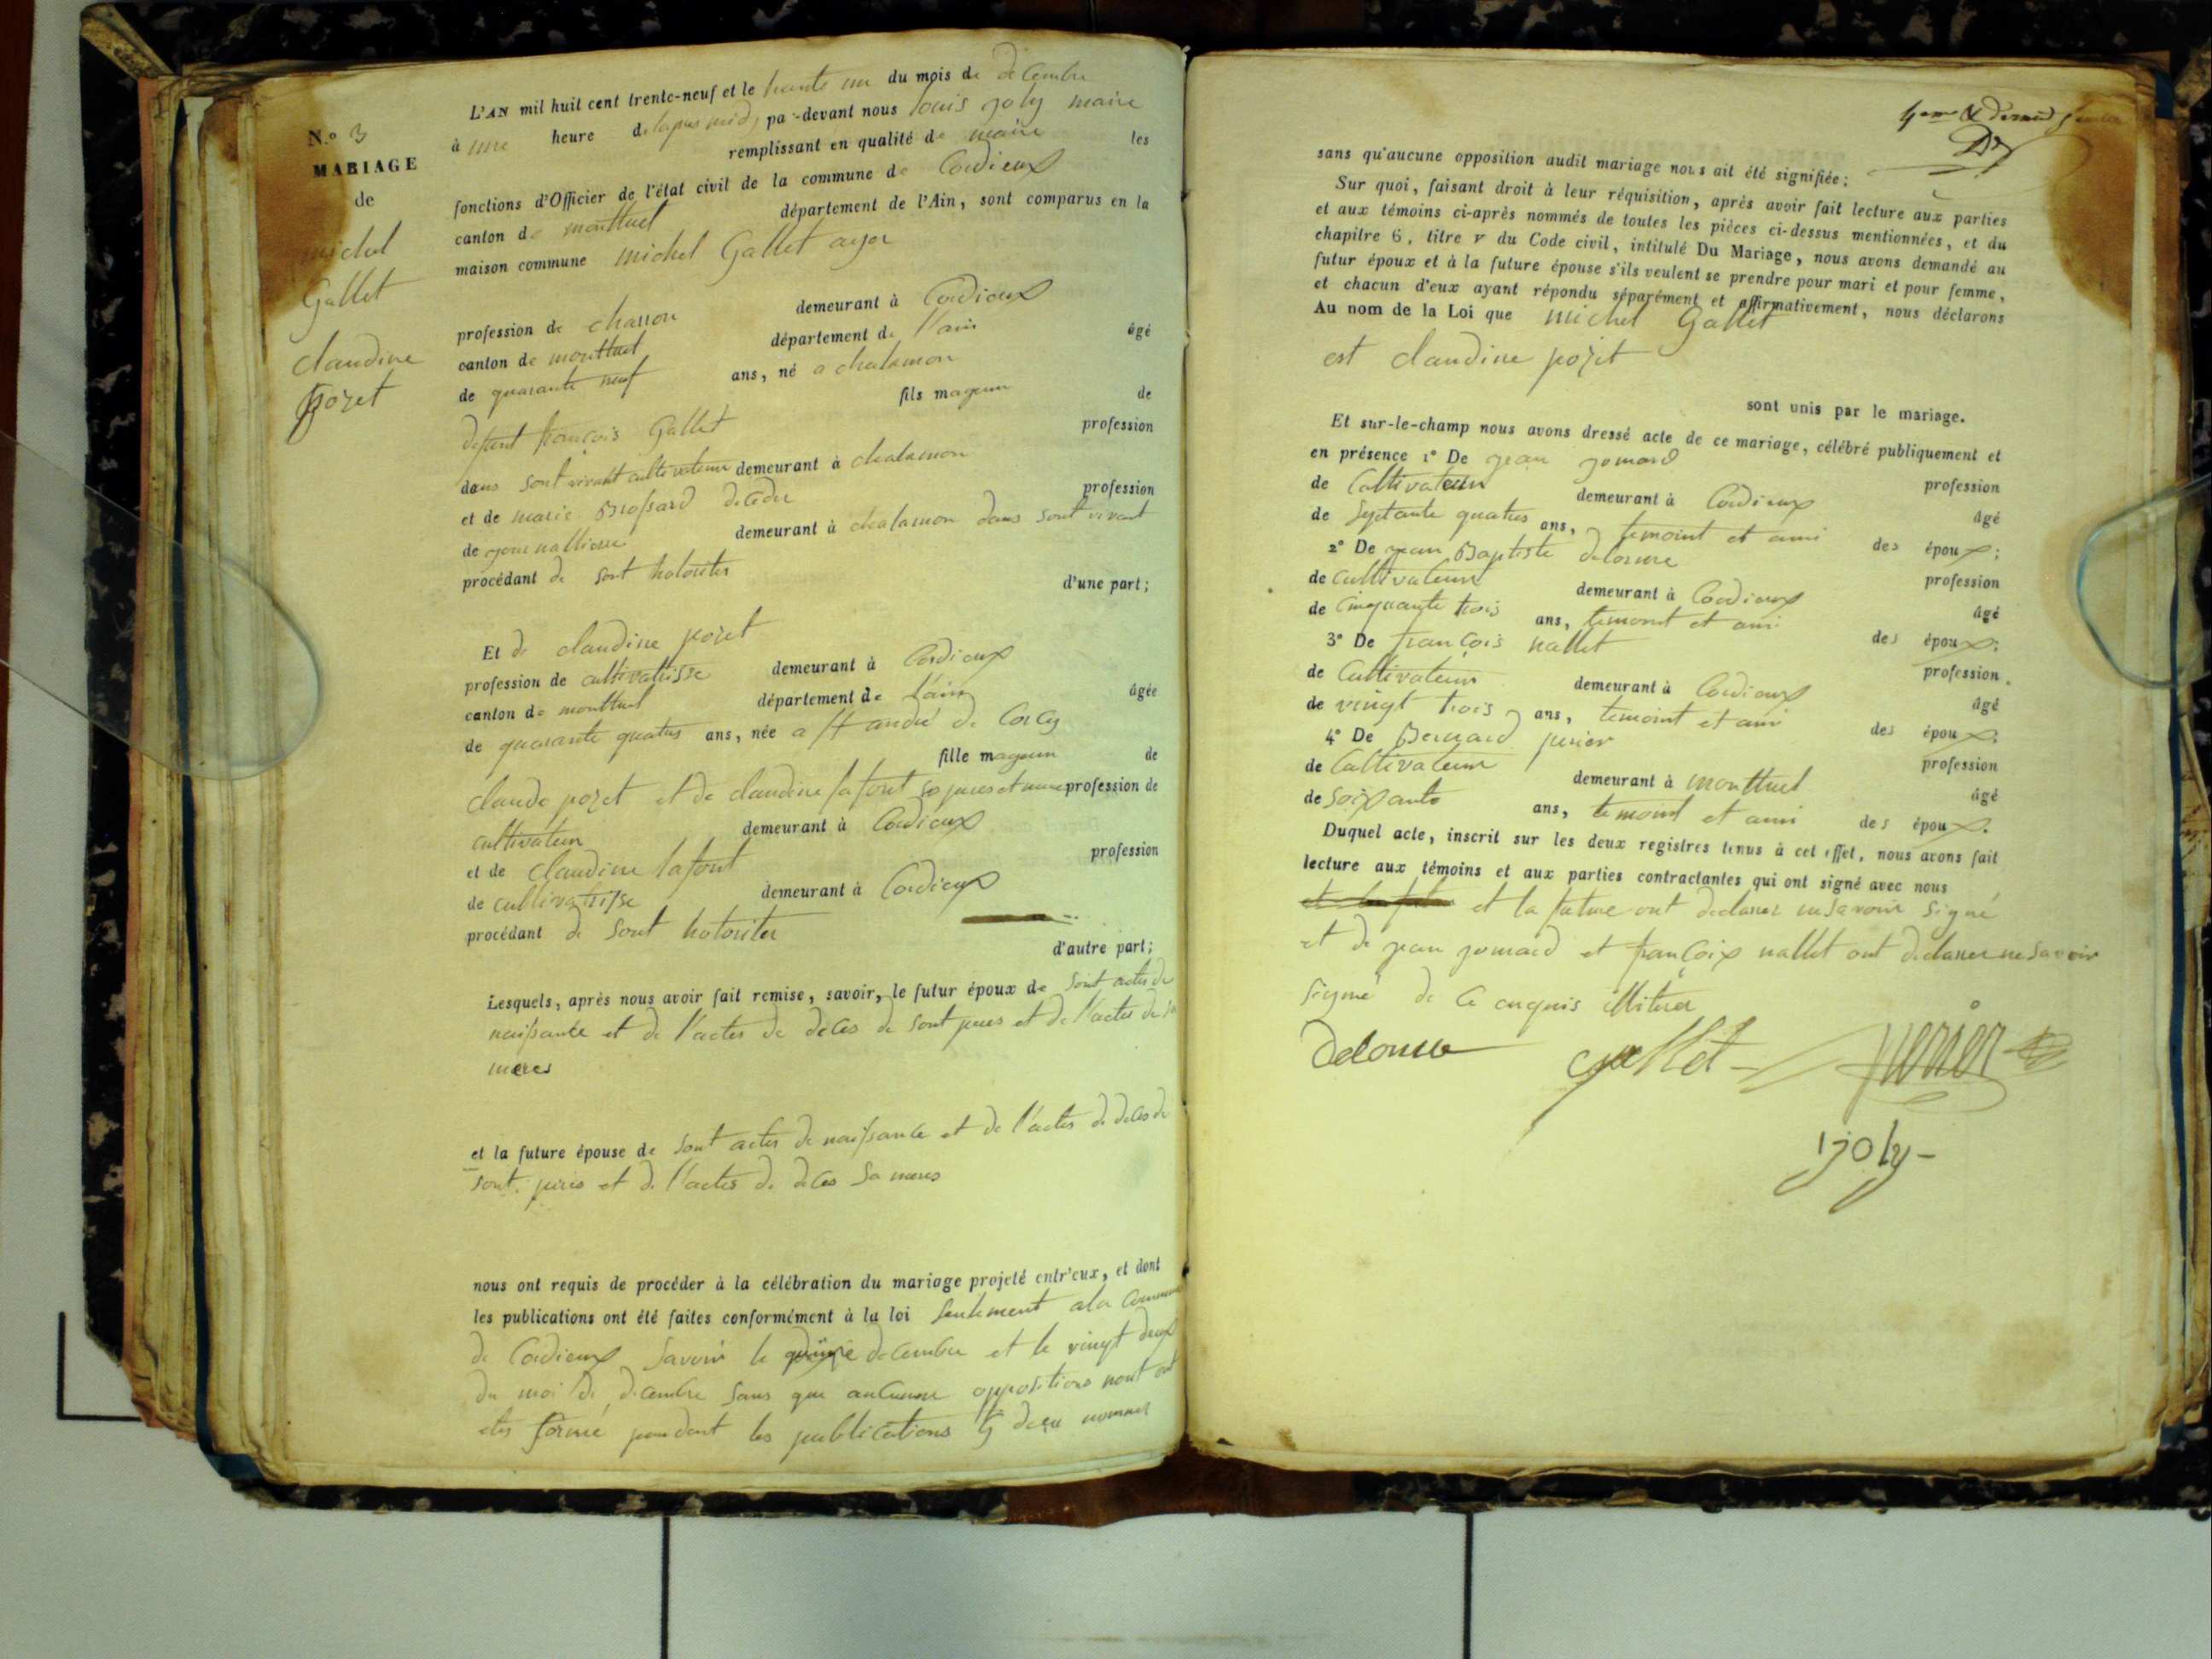 N.o 3
MARIAGE
de
michel
Gallet
claudine
pozet
L'AN mil huit cent trente-neuf et le trante un du mois de decembre
à une heure delapres midy par-devant nous louis joly maire
remplissant en qualité de maire les
fonctions d'Officier de l'état civil de la commune de Cordieux
canton de montluel département de l'Ain, sont comparus en la
maison commune michel Gallet
profession de charron demeurant à Cordieux
canton de montluel département de l'ain âgé
de quarante neuf ans, né a chalamon
fils mageur de
defunt françois Gallet profession
dans sont vivant cultivateur demeurant à chalamon
et de marie Brossard deceder profession
de journalliere demeurant à chalamon dans sont vivant
procédant de sont hotoriter d'une part;
Et de claudine pozet
profession de cultivatrisse demeurant à Cordieux
canton de montluel département de l'ain âgée
de quarante quatres ans, née a st andré de Corcy
fille mageur de
claude pozet et de claudine lafont profession de
cultivateur demeurant à Cordieux
et de claudine lafont profession
de cultivatrisse demeurant à Cordieux
procédant de sont hotoriter d'autre part;
Lesquels, après nous avoir fait remise, savoir, le futur époux de sont actes de
naissance et de l'actes de deces de sont peres et de l'actes de sa
meres
et la future épouse de sont actes de naissance et de l'actes de deces de
sont peres et de l'actes de deces sa meres
nous ont requis de procéder à la célébration du mariage projeté entr'eux, et dont
les publications ont été faites conformément à la loi seulement ala Commune
de Cordieux savoir le quinze decembre et le vingt deux
du moi de decembre sans que aucunne oppositions nont ont
etes formé pendant les publications
sans qu'aucune opposition audit mariage nous ait été signifiée;
Sur quoi, faisant droit à leur réquisition, après avoir fait lecture aux parties
et aux témoins ci-après nommés de toutes les pièces ci-dessus mentionnées, et du
chapitre 6, titre v du Code civil, intitulé Du Mariage, nous avons demandé au
futur époux et à la future épouse s'ils veulent se prendre pour mari et pour femme,
et chacun d'eux ayant répondu séparément et affirmativement, nous déclarons
Au nom de la Loi que michel Gallet
est claudine pozet
sont unis par le mariage.
Et sur-le-champ nous avons dressé acte de ce mariage, célébré publiquement et
en présence 1° De jean jomard profession
de Cultivateur demeurant à Cordieux âgé
de septante quatres ans, temoint et ami des époux;
2° De jean Baptiste delorme profession
de cultivateur demeurant à Cordieux âgé
de cinquante trois ans, temoint et ami des époux;
3° De françois nallet profession
de Cultivateur demeurant à Cordieux âgé
de vingt trois ans, temoint et ami des époux;
4° De Bernard perier profession
de Cultivateur demeurant à montluel âgé
de soixante ans, temoint et ami des époux.
Duquel acte, inscrit sur les deux registres tenus à cet effet, nous avons fait
lecture aux témoins et aux parties contractantes qui ont signé avec nous
et la future ont declarer ne savoir signé
et de jean jomard et françoix nallet ont declarer ne savoir
signé de ce enquis
Delorme Gallet perier
joly